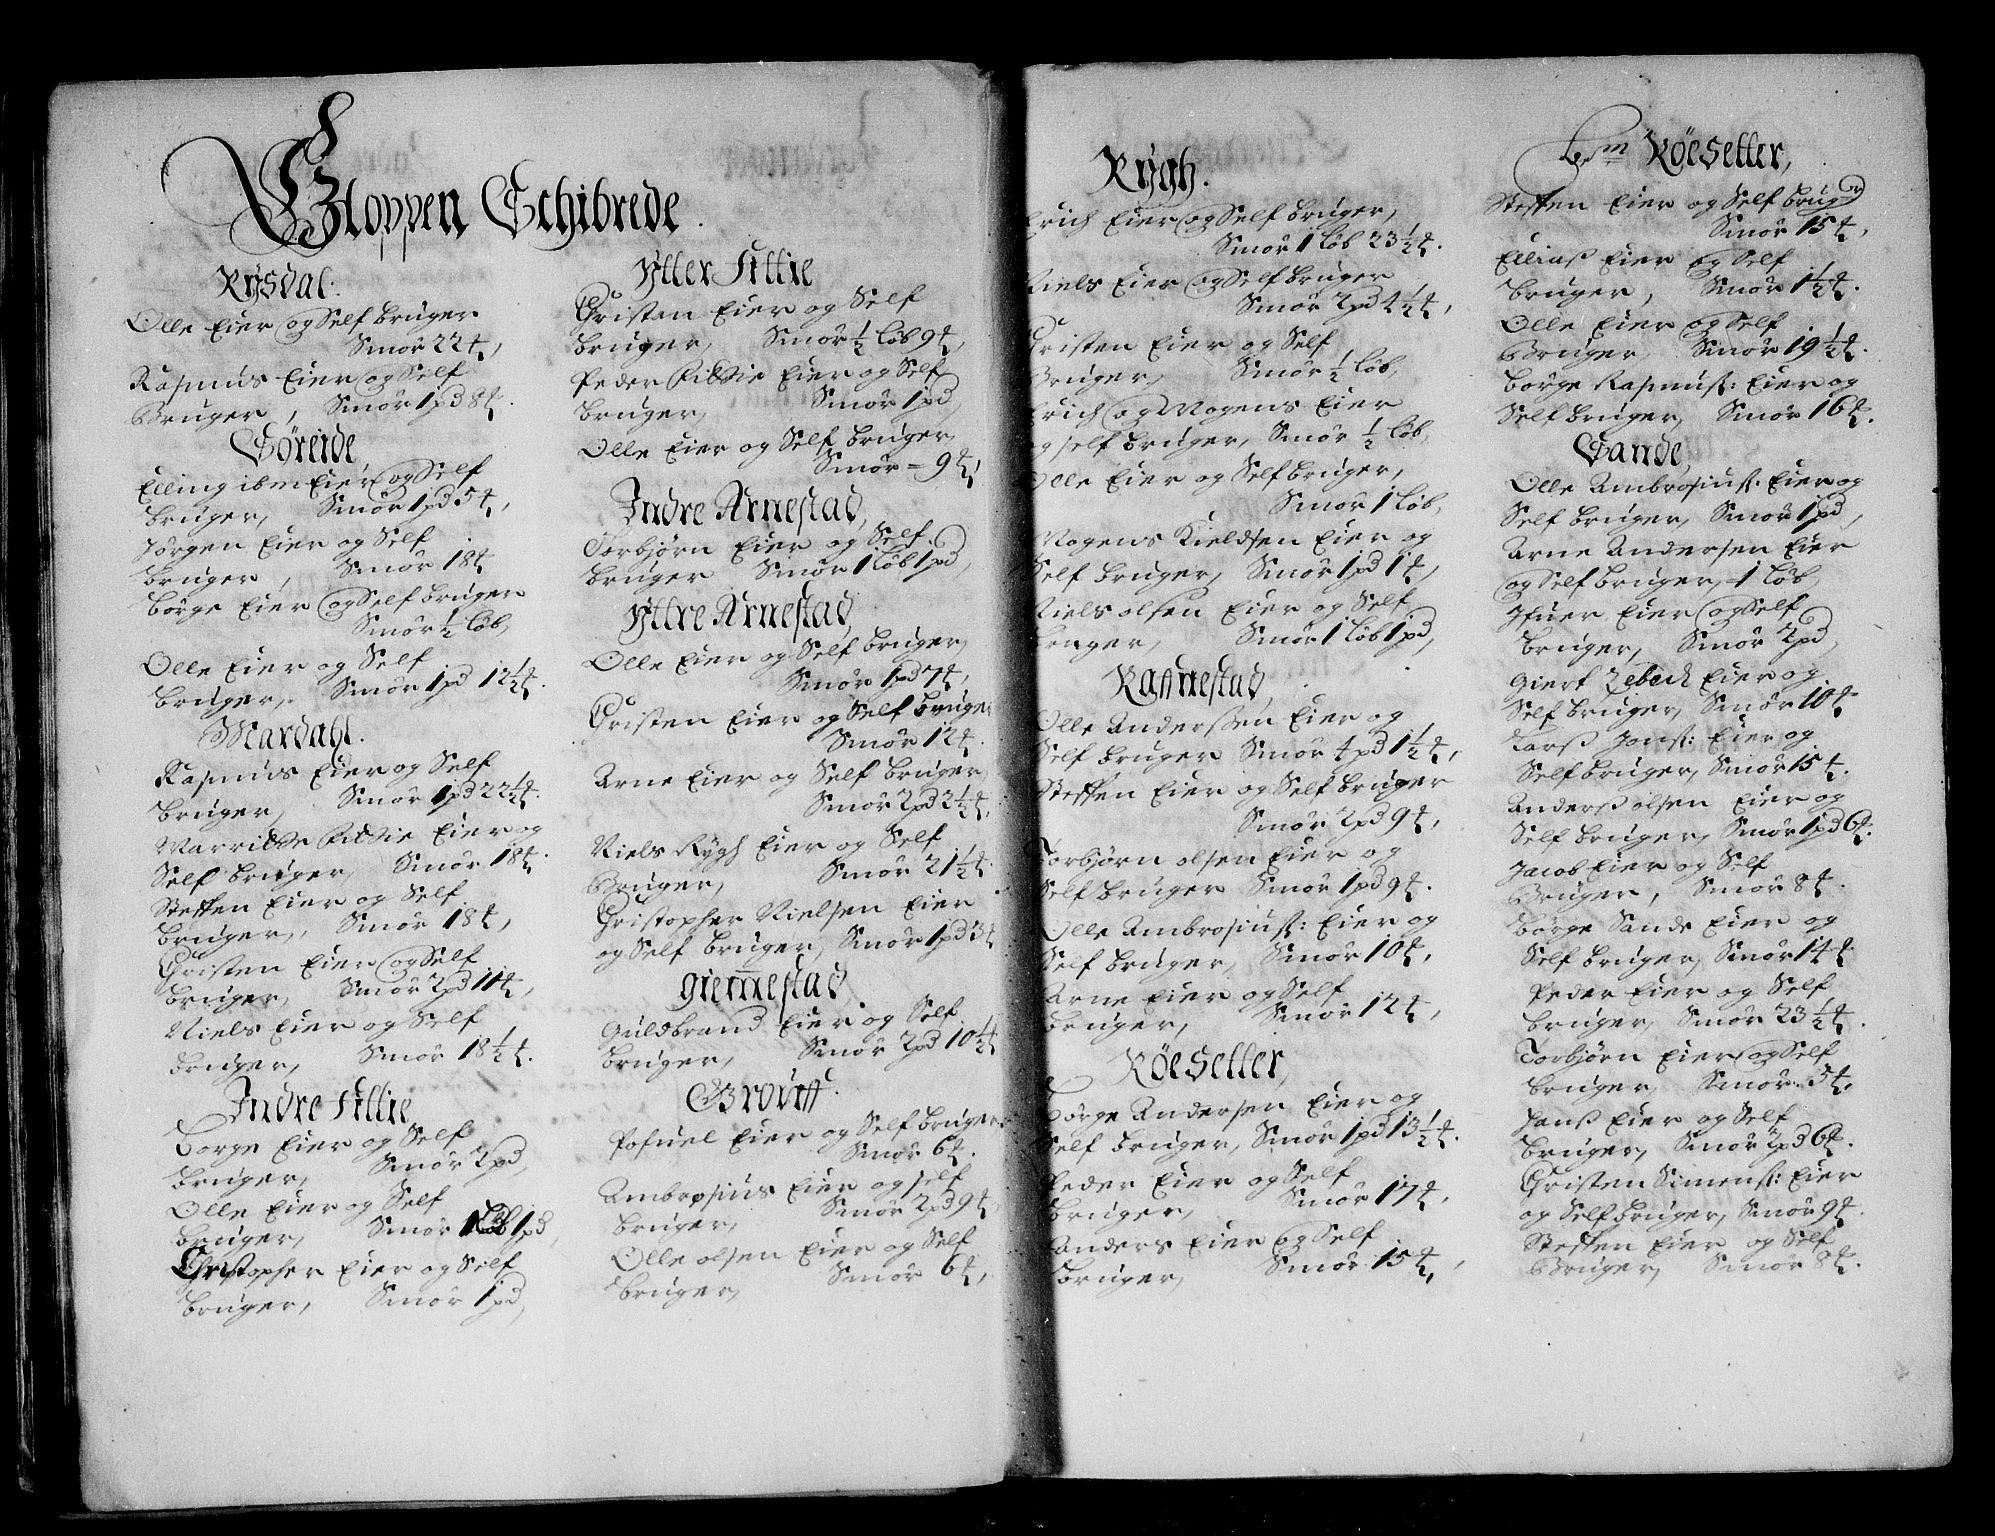 Gloppen Schibrede.
Rysdal.
Olle Eier og Self bruger
Smör 22 ℔,
Rasmus Eier og Self
Bruger, Smör 1 pd 8 ℔.
Söreide
Elling ibm Eier og Self
bruger, Smör 1 pd 5 ℔,
Jörgen Eier og Self
bruger, Smör 18 ℔
Börge Eier og Self bruger
Smör ½ löb,
Olle Eier og Self
bruger, Smör 1 pd 12½ ℔.
Mardahl.
Rasmus Eier og Self
bruger, Smör 1 pd 22½ ℔.
Eier og
Self bruger, Smör 18 ℔.
Steffen Eier og Self
bruger, Smör 18 ℔,
Christen Eier og Self
bruger, Smör 2 pd 11 ℔,
Niels Eier og Self
bruger, Smör 18½ ℔.
Indre Fittie
Börge Eier og Self
bruger, Smör 2 pd,
Olle Eier og Self
bruger, Smör 1 löb 1 pd,
Christopher Eier og Self
bruger, Smör 1 pd,
Ytter Fittie
Christen Eier og Self
bruger, Smör ½ löb 9 ℔,
Peder Eier og Self
bruger, Smör 1 pd,
Olle Eier og Self bruger,
Smör – 9 ℔,
Indre Arnestad,
Torbjörn Eier og Self
bruger Smör 1 löb 1 pd,
Yttre Arnestad,
Olle Eier og Self bruger,
Smör 1 pd 7 ℔,
Christen Eier og Self bruger
Smör 12 ℔.
Arne Eier og Self bruger,
Smör 2 pd 2½ ℔,
Niels Rygh Eier og Self
Bruger, Smör 21½ ℔.
Christopher Nielsen Eier
og Self bruger, Smör 1 pd 3 ℔
Giem̄estad,
Guldbrand Eier og Self
bruger, Smör 2 pd 10½ ℔
Eier og Self bruger
Smör 6 ℔.
Ambrosius Eier og self
bruger, Smör 2 pd 9 ℔,
Olle olsen Eier og Self
bruger, Smör 6 ℔,
Rygh.
Erich Eier og Self bruger,
Smör 1 löb 23½ ℔.
Niels Eier og Self bruger
Smör 2 pd 4½ ℔,
Christen Eier og Self
Bruger, Smör ½ löb,
Erich og Mogens Eier
og self bruger, Smör ½ löb,
Olle Eier og Self bruger,
Smör 1 löb,
Mogens Kieldsen Eier og
Self bruger, Smör 1 pd 1 ℔,
Niels olsen Eier og Self
bruger, Smör 1 löb 1 pd,
Ran̄estad,
Olle Anderssen Eier og
Self bruger Smör 4 pd 1½ ℔,
Steffen Eier og Self bruger
Smör 2 pd 9 ℔,
Torbjörn olsen Eier og
Self bruger Smör 1 pd 9 ℔.
Olle Ambrosiuss: Eier og
Self bruger, Smör 10 ℔,
Arne Eier og Self
bruger, Smör 12 ℔,
Röesetter,
Börge Andersen Eier og
Self bruger, Smör 1 pd 13½ ℔.
Peder Eier og Self
bruger, Smör 17 ℔,
Anders Eier og Self
bruger, Smör 15 ℔,
Röesetter,
Steffen Eier og Self bruger
Smör 15 ℔,
Elliass Eier og Self
bruger, Smör 1½ ℔.
Olle Eier og Self
Bruger, Smör 19½ ℔.
Börge Rasmuss: Eier og
Self bruger, Smör 16 ℔.
Sande,
Olle Ambrosiuss: Eier og
Self bruger, Smör 1 pd,
Arne Andersen Eier
og Self bruger, – 1 löb,
Ifuer Eier og Self
bruger, Smör 2 pd,
Giert Eier og
Self bruger, Smör 10 ℔
Larss Jonss: Eier og
Self bruger, Smör 15 ℔.
Anderss olsen Eier og
Self bruger, Smör 1 pd 6 ℔.
Jacob Eier og Self
Bruger, Smör 8 ℔.
Börge Sande Eier og
Self bruger, Smör 14 ℔
Peder Eier og Self
bruger, Smör 23½ ℔.
Torbjörn Eier og Self
bruger, Smör 3 ℔.
Hanss Eier og Self
bruger, Smör 2 pd 6 ℔.
Christen Simenss: Eier
og Self bruger, Smör 9 ℔.
Steffen Eier og Self
Bruger, Smör 8 ℔.